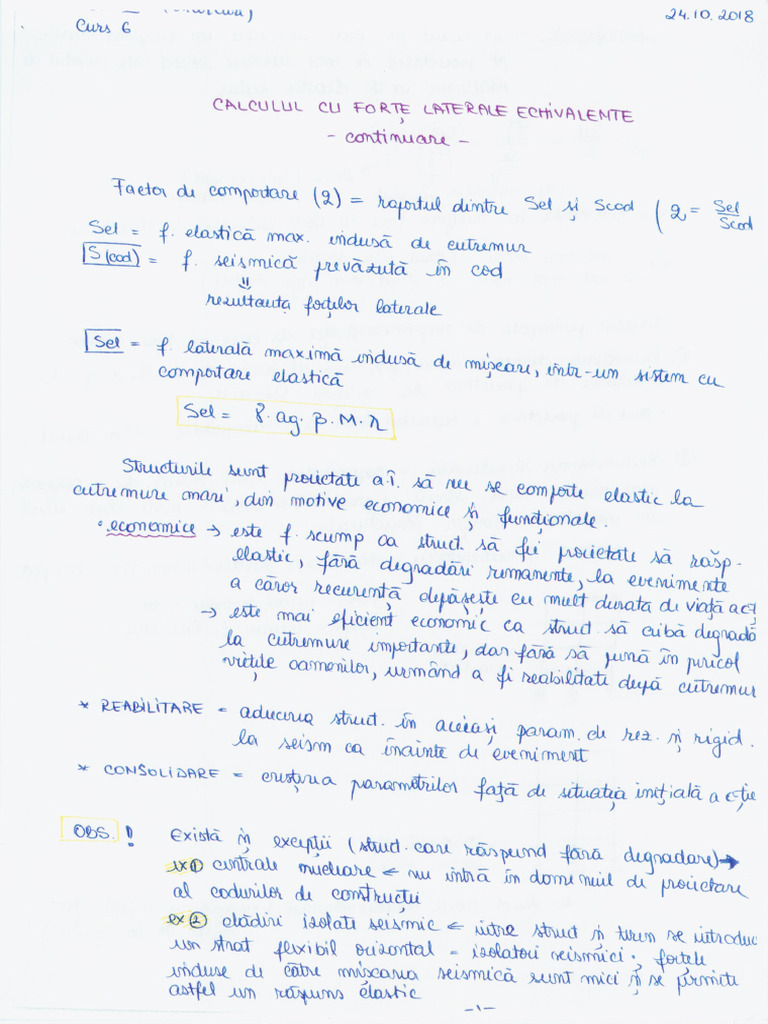 24.10.2018
Curs 6
CALCULUL CU FORȚE LATERALE ECHIVALENTE
- continuare -
Factor de comportare (q) = raportul dintre Sel și Scod ( q = Sel/Scod
Sel = f. elastică max. indusă de cutremur
S(cod) = f. seismică prevăzută în cod
rezultanta forțelor laterale
Sel = f. laterală maximă indusă de mișcare, într-un sistem cu
comportare elastică
Sel = γ·ag·β·M·λ
Structurile sunt proiectate a.î. să nu se comporte elastic la
cutremure mari, din motive economice și funcționale.
• economice → este f. scump ca struct. să fie proiectate să răsp-
elastic, fără degradări remanente, la evenimente
a căror recurență depășește cu mult durata de viață a cț
→ este mai eficient economic ca struct. să aibă degradă
la cutremure importante, dar fără să pună în pericol
viețile oamenilor, urmând a fi reabilitate după cutremur
* REABILITARE = aducerea struct. în aceiași param. de rez. și rigid.
la seism ca înainte de eveniment
* CONSOLIDARE = creșterea parametrilor față de situația inițială a cție
OBS. ! Există și excepții (struct. care răspund fără degradare) →
ex ① centrale nucleare ← nu intră în domeniul de proiectare
al codurilor de construcții
ex ② clădiri izolate seismic ← între struct și teren se introduc
un strat flexibil orizontal = izolatori seismici; forțele
induse de către mișcarea seismică sunt mici și se permite
astfel un răspuns elastic
-1-